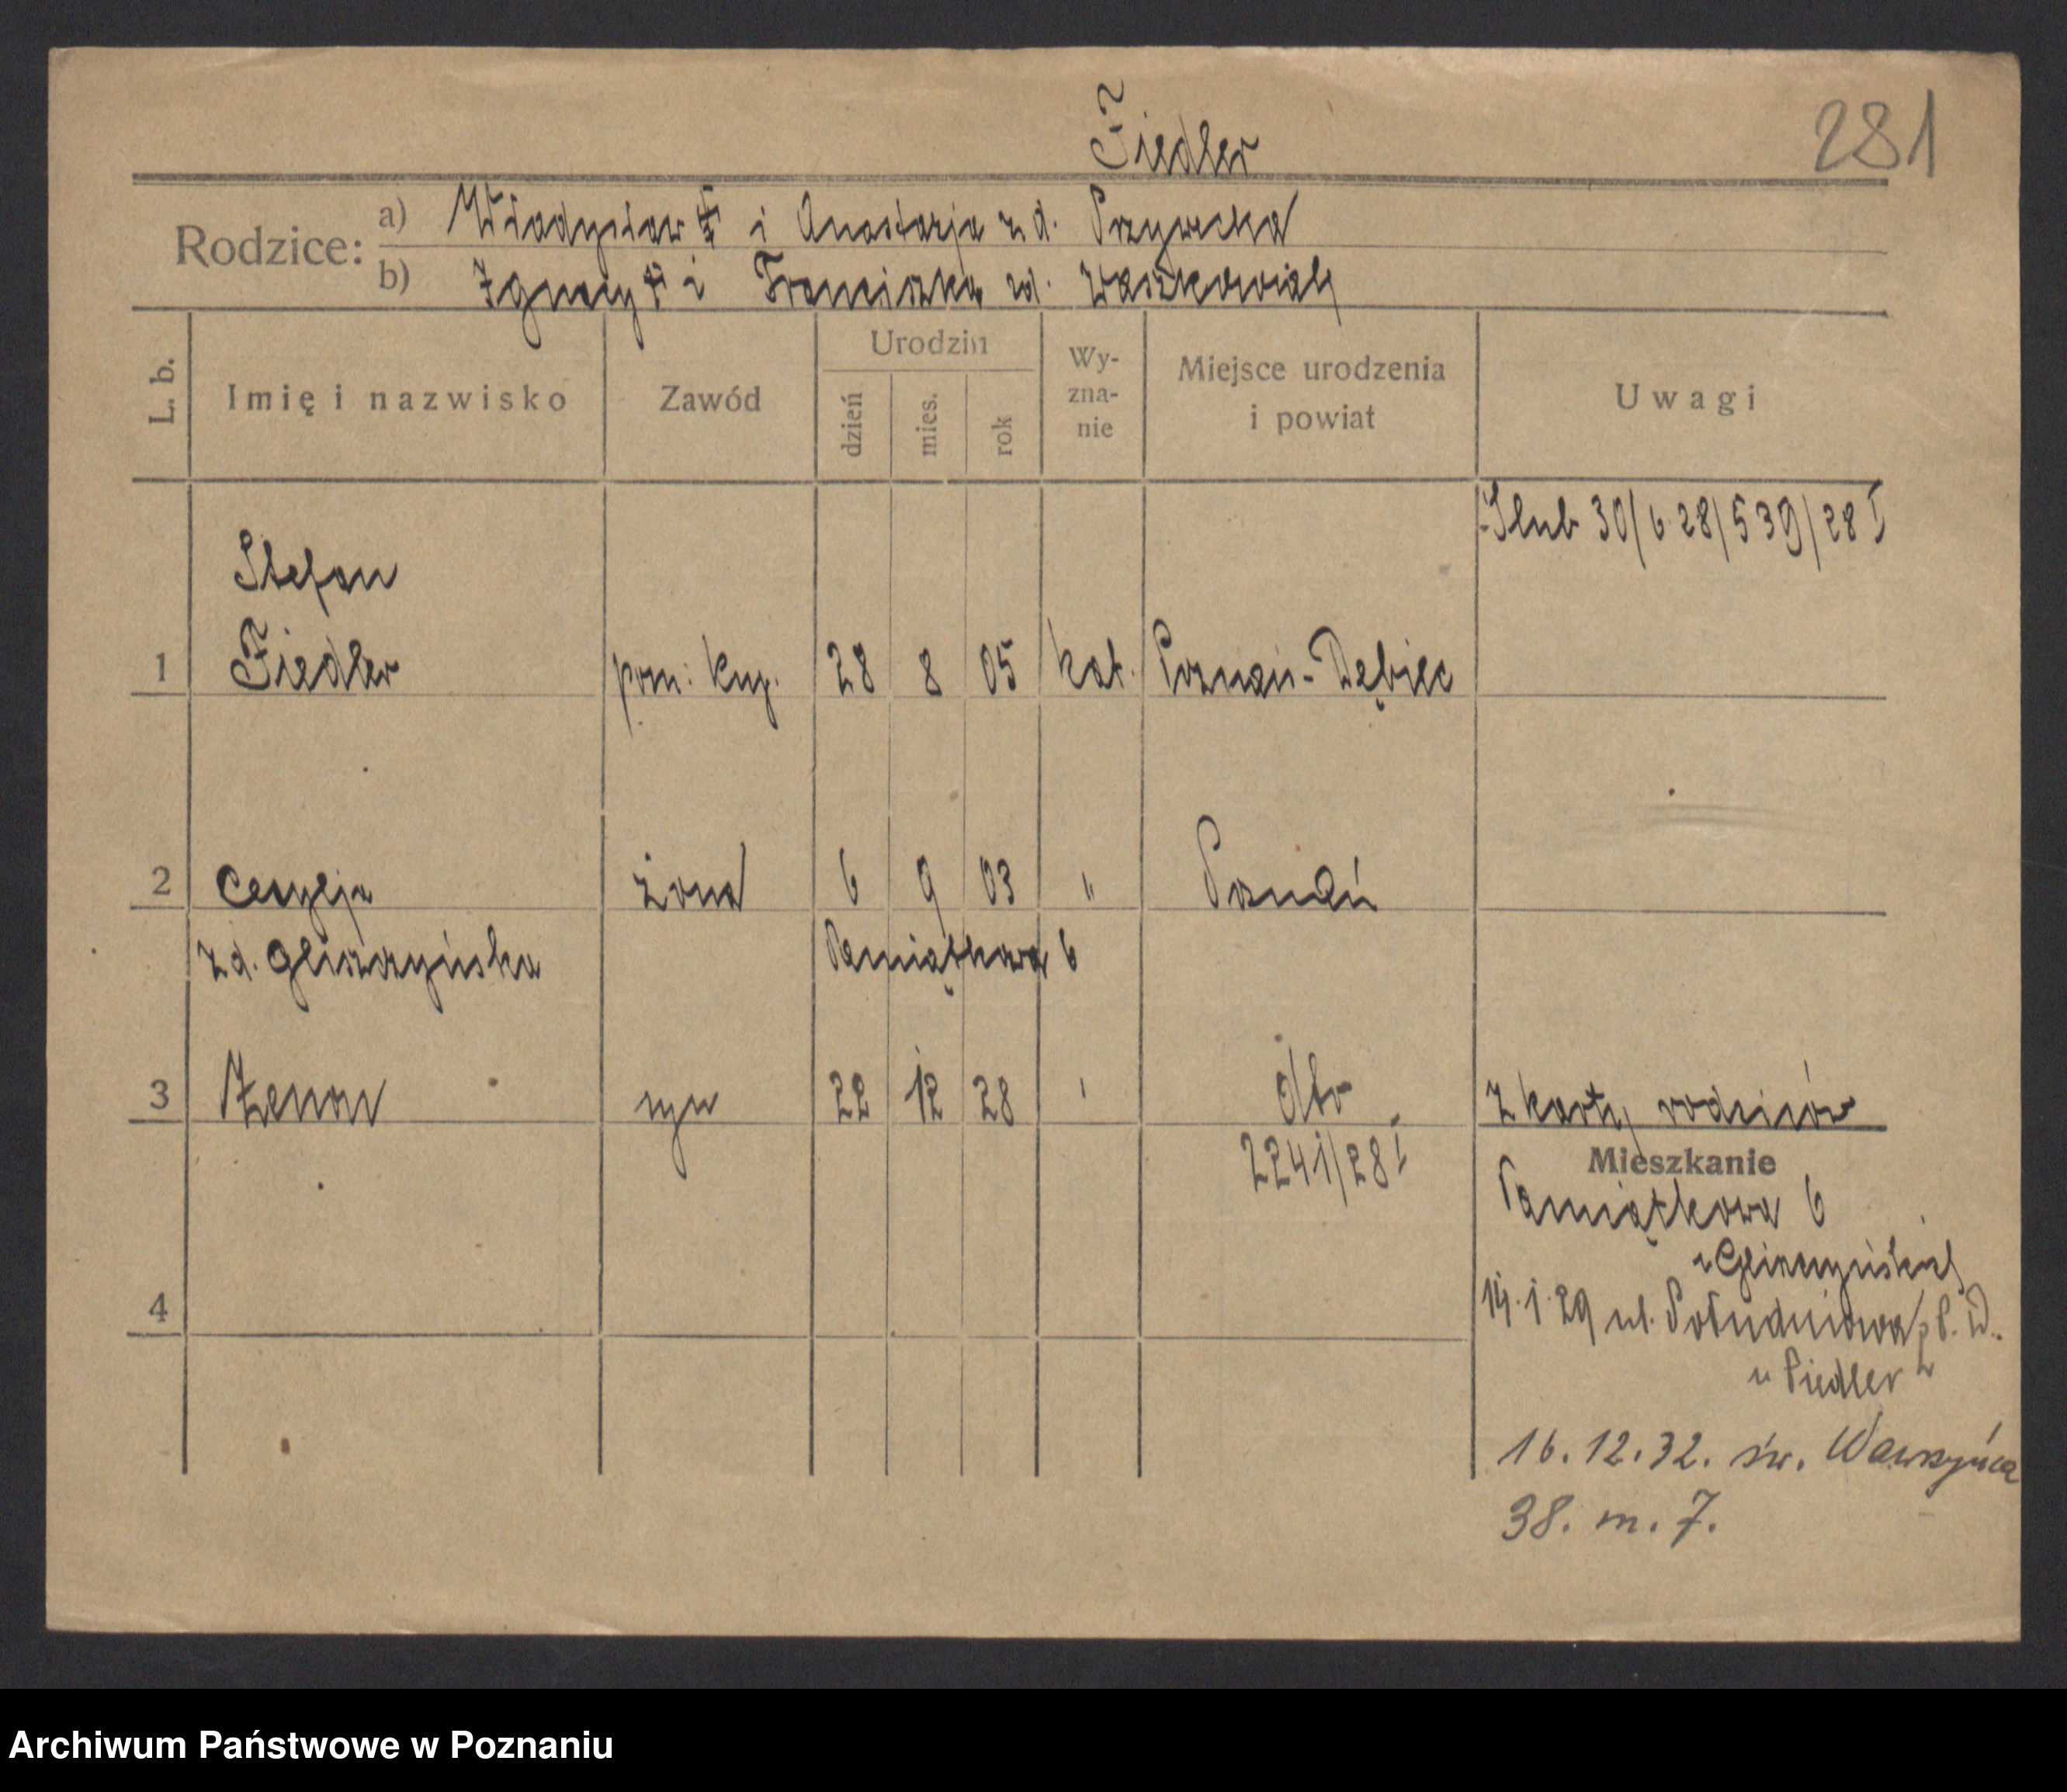 Fiedler
281
Rodzice: a) Władysław i Anastazja z d. Przywecka
b) Ignacy i Franciszka zd. Waszkowiak
L. b.
Imię i nazwisko
Zawód
Urodzin
dzień
mies.
rok
Wy-
zna-
nie
Miejsce urodzenia
i powiat
Uwagi
Ślub 30/6 28/539/28 I
Stefan
1 Fiedler pom: kup. 28 8 05 kat. Poznań-Dębiec
2 Cecylja żona 6 9 03 " Poznań
z d. Gliszczyńska Pamiątkowa 6
3 Zenon syn 22 12 28 dto z karty rodziców
2241/28 I
Mieszkanie
Pamiątkowa 6
u Gliszczyńskich
4
14.1.29 ul. Południowa P. D.
u Fiedler
16.12.32. św. Wawrzyńca
38. m. 7.
Archiwum Państwowe w Poznaniu